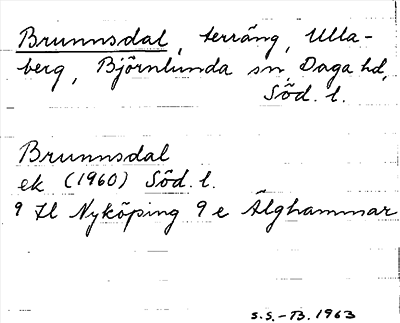 Brunnsdal, terräng, Ulla-
berg, Björnlunda sn, Daga hd,
Söd. l.
Brunnsdal
ek (1960) Söd. l.
9 Il Nyköping 9 e Älghammar
S.S.-B. 1963